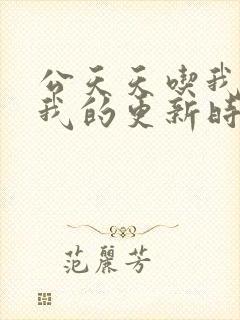 公天天喫我
我的更新時
范麗芳